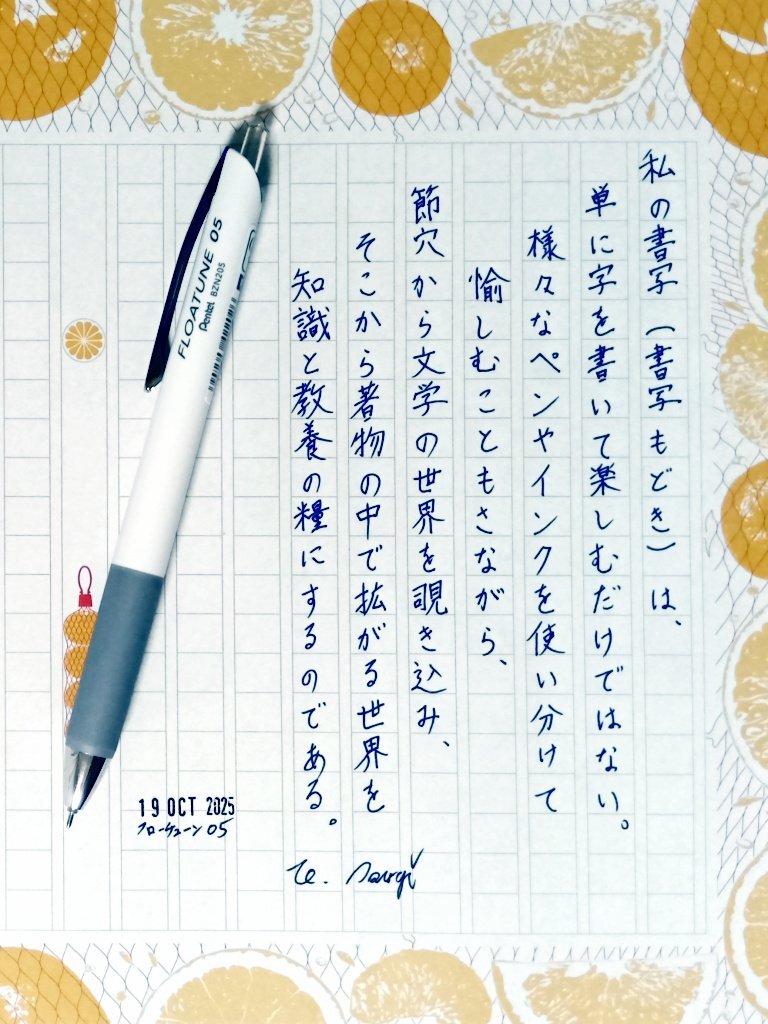 私の書写(書写もどき)は、
単に字を書いて楽しむだけではない。
様々なペンやインクを使い分けて
愉しむこともさながら、
節穴から文学の世界を覗き込み、
そこから著物の中で拡がる世界を
知識と教養の糧にするのである。
FLOATUNE 05
Pentel BZN205
19 OCT 2025
フローチューン05